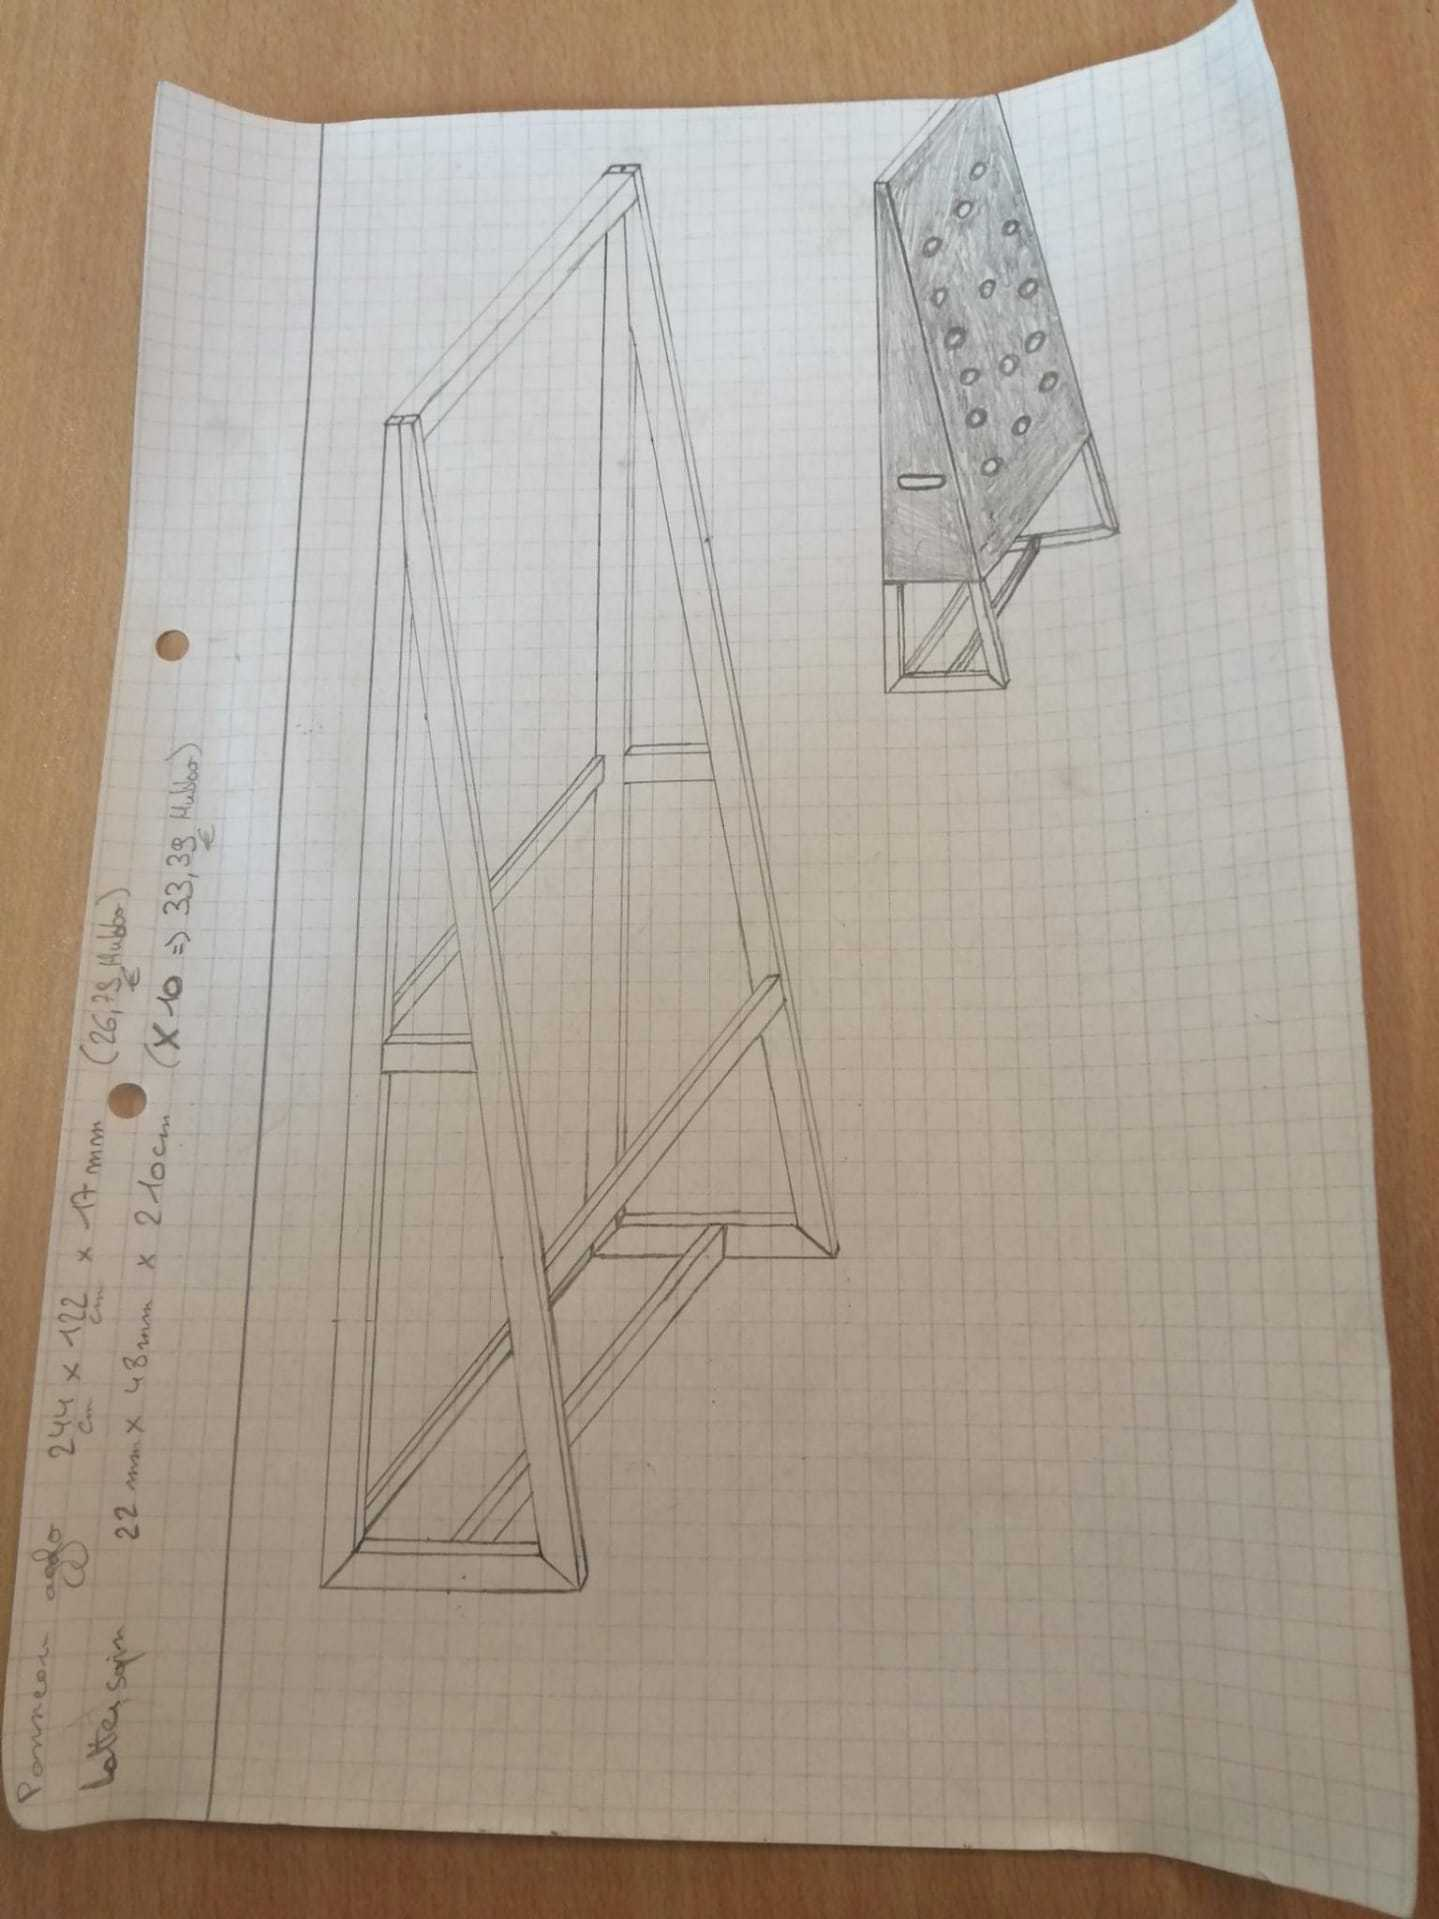 Panneau agglo 244 cm x 122 cm x 17 mm (26,79 € Hubbo)
Lattes sapin 22 mm x 48 mm x 210 cm (x 10 => 33,39 € Hubbo)